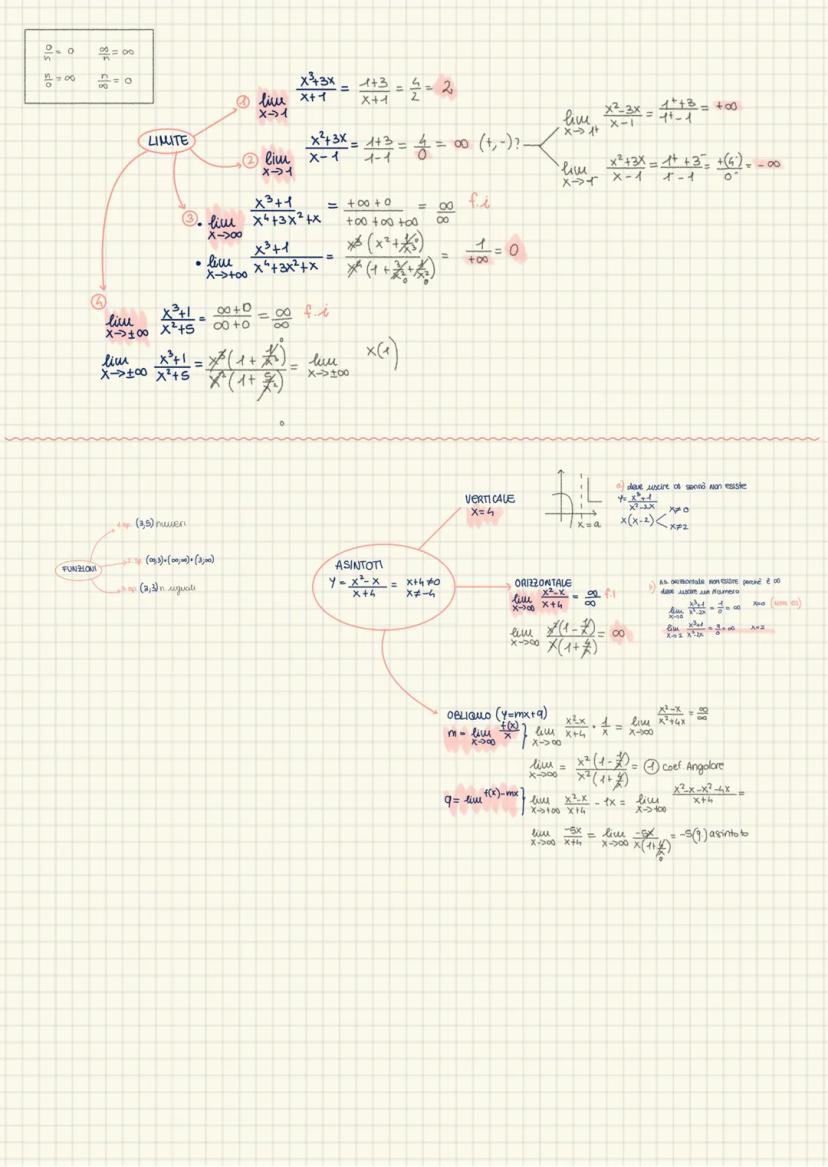 0/n = 0   ∞/n = ∞
n/0 = ∞   n/∞ = 0
LIMITE
① lim x→1 (x³+3x)/(x+1) = (1+3)/(x+1) = 4/2 = 2
② lim x→1 (x²+3x)/(x-1) = (1+3)/(1-1) = 4/0 = ∞ (+,-)?
lim x→1⁺ (x²-3x)/(x-1) = (1⁺+3)/(1⁺-1) = +∞
lim x→1⁻ (x²+3x)/(x-1) = (1⁻+3⁻)/(1⁻-1) = +(4⁻)/0⁻ = -∞
③ • lim x→∞ (x³+1)/(x⁴+3x²+x) = (+∞+0)/(+∞+∞+∞) = ∞/∞ f.i
• lim x→+∞ (x³+1)/(x⁴+3x²+x) = x³(x²+1/x³)/x⁴(1+3/x²+1/x²) = 1/+∞ = 0
④ lim x→±∞ (x³+1)/(x²+5) = (∞+0)/(∞+0) = ∞/∞ f.i
lim x→±∞ (x³+1)/(x²+5) = x³(1+1/x³)/x²(1+5/x²) = lim x→±∞ x(1)
FUNZIONI
(3,5) numeri
(∞;3)=(∞;∞)•(3;∞)
(2;3) n uguali
ASINTOTI
y = (x²-x)/(x+4) = x+4≠0
x≠-4
VERTICALE
x=4
x=a
a) deve uscire ∞ sennò non esiste
y= (x³+1)/(x²-2x)
x(x-2) < x≠0
x≠2
ORIZZONTALE
lim x→∞ (x²-x)/(x+4) = ∞/∞ f.i
lim x→∞ x²(1-1/x)/x(1+4/x) = ∞
b) As. orizzontale non esiste perché è ∞
deve uscire un numero
lim x→0 (x³+1)/(x²-2x) = 1/0 = ∞ x=0 (non es)
lim x→2 (x³+1)/(x²-2x) = 9/0 = ∞ x=2
OBLIQUO (y=mx+q)
m = lim x→∞ f(x)/x } lim x→∞ (x²-x)/(x+4) • 1/x = lim x→∞ (x²-x)/(x²+4x) = ∞/∞
lim x→∞ = x²(1-1/x)/x²(1+4/x) = ① coef. Angolare
q = lim f(x)-mx } lim x→+∞ (x²-x)/(x+4) - 1x = lim x→+∞ (x²-x-x²-4x)/(x+4) =
lim x→∞ -5x/(x+4) = lim x→∞ -5x/x(1+4/x) = -5(q) asintoto